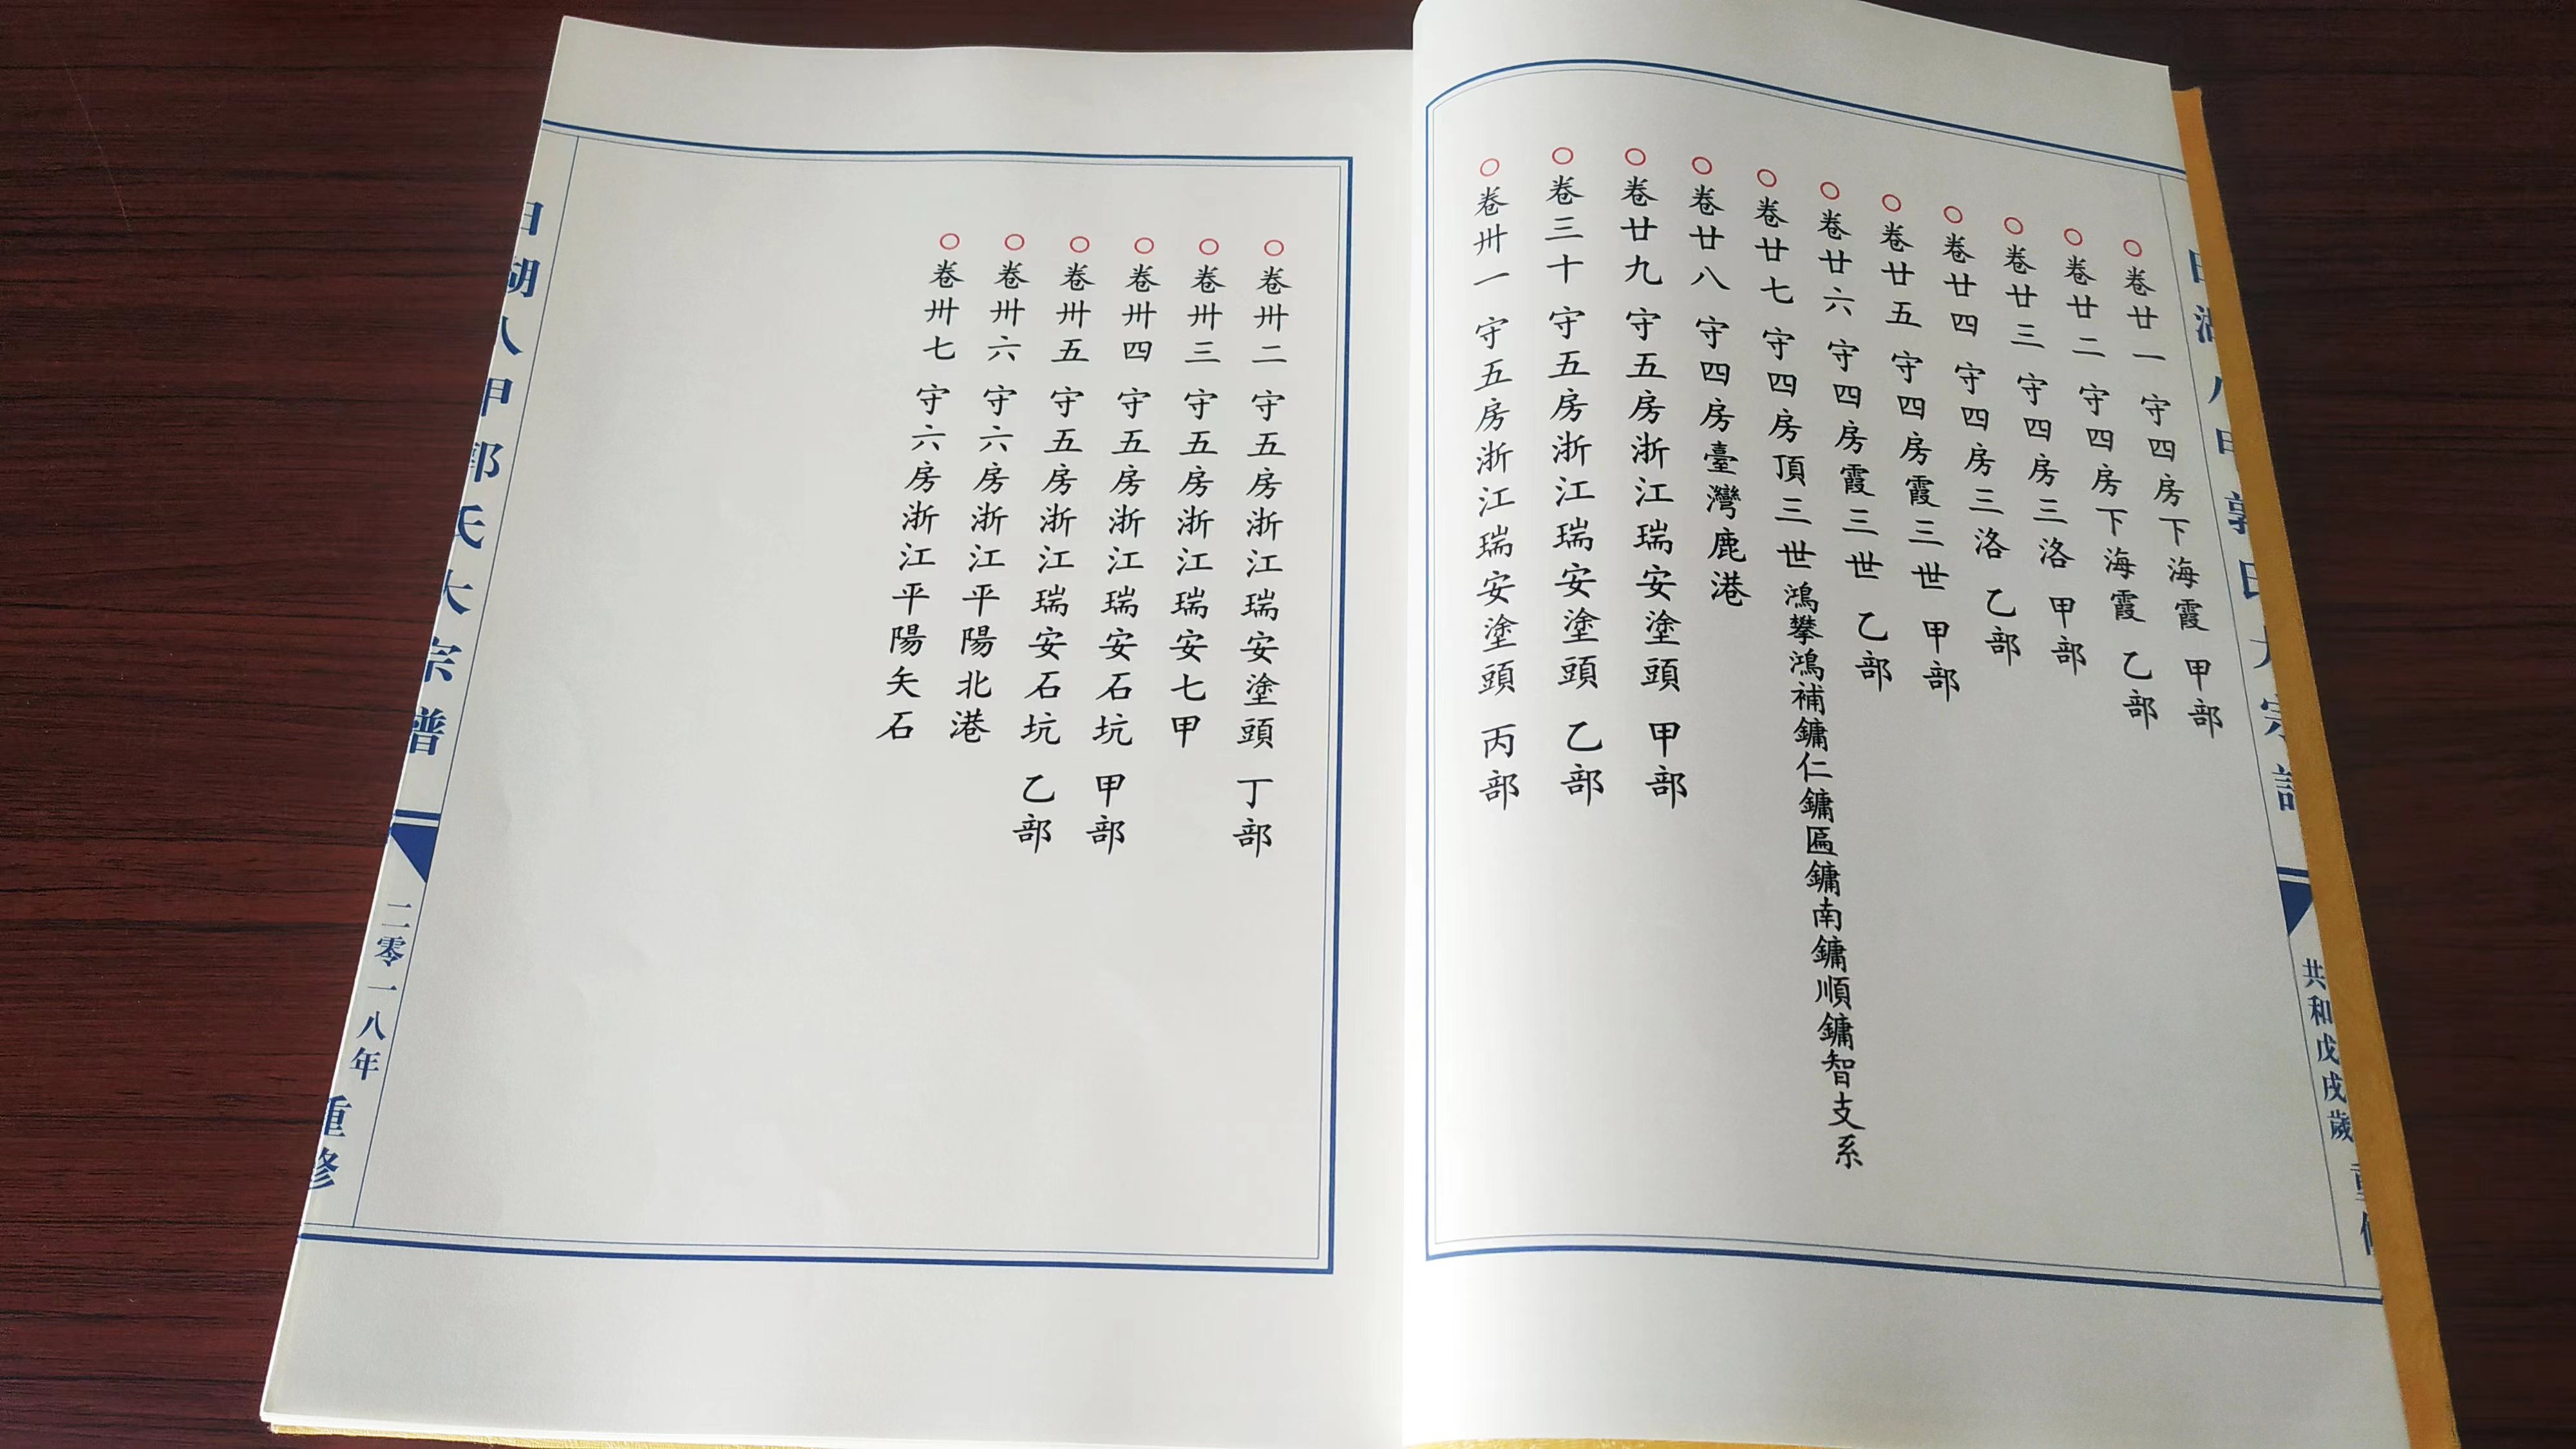 卷廿一 守四房下海霞 甲部
卷廿二 守四房下海霞 乙部
卷廿三 守四房三洛 甲部
卷廿四 守四房三洛 乙部
卷廿五 守四房霞三世 甲部
卷廿六 守四房霞三世 乙部
卷廿七 守四房頂三世鴻攀鴻補鏞仁鏞匾鏞南鏞順鏞智支系
卷廿八 守四房臺灣鹿港
卷廿九 守五房浙江瑞安塗頭 甲部
卷三十 守五房浙江瑞安塗頭 乙部
卷卅一 守五房浙江瑞安塗頭 丙部
共和戊戌歲 重修
卷卅二 守五房浙江瑞安塗頭 丁部
卷卅三 守五房浙江瑞安七甲
卷卅四 守五房浙江瑞安石坑 甲部
卷卅五 守五房浙江瑞安石坑 乙部
卷卅六 守六房浙江平陽北港
卷卅七 守六房浙江平陽矢石
湖八甲郭氏大宗譜
二零一八年 重修